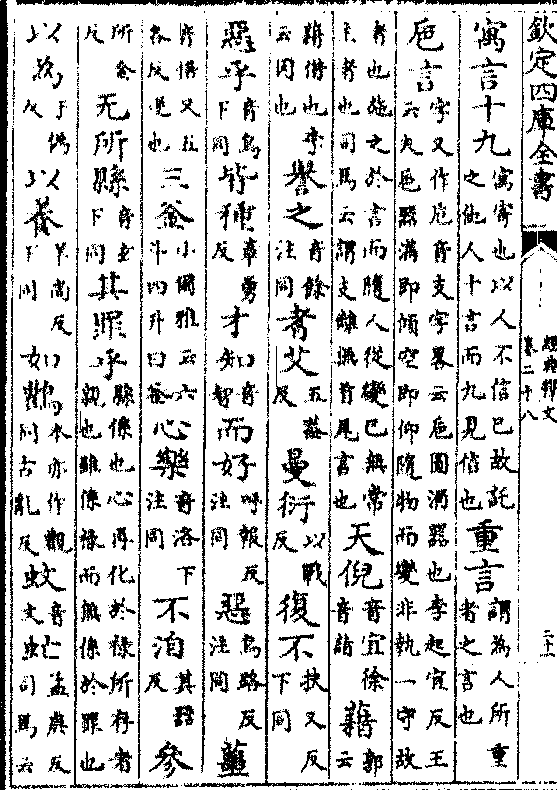 欽定四庫全書
經典釋文
卷二十八
寓言十九寓寄也以人不信已故託之他人十言而九見信也重言謂為人所重者之言也
卮言字又作巵音支字畧云巵圓酒器也李起宜反王云夫巵器滿即傾空即仰隨物而變非執一守故
者也施之於言而隨人從變已無常主者也司馬云謂支離無首尾言也天倪音宜徐音詣藉郭云
藉借也李云因也譽之音餘注同耆艾五蓋反曼衍以戰反復不扶又反下同
惡乎音烏下同皆種章勇反才知音智而好呼報反注同惡烏路反注同蘁
音悟又五各反逆也三釜小爾雅云六斗四升曰釜心樂音洛下注同不洎其器反參
所金反无所縣音玄下同其罪乎縣係也心再化於祿所存者親也雖係祿而無係於罪也
以為于偽反以養羊尚反下同如鸛本亦作觀同古亂反蚊音文虻孟庚反司馬云